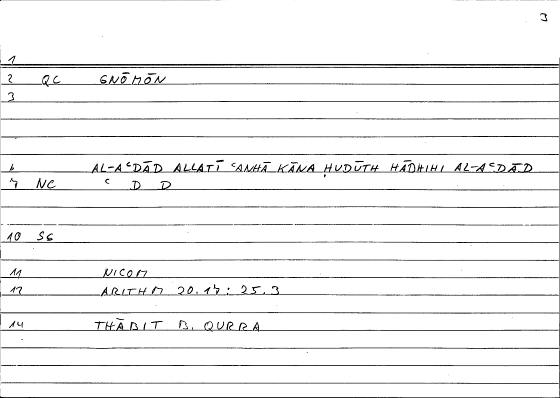 3
1
2 QC GNŌMŌN
3
6 AL-AʿDĀD ALLATĪ ʿANHĀ KĀNA ḤUDŪTH HĀDHIHI AL-AʿDĀD
7 NC ʿ D D
10 SG
11 NICOM
12 ARITHM 20.17: 25.3
14 THĀBIT B. QURRA